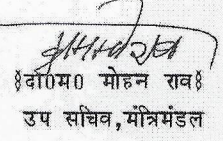 §दी0म0 मोहन राव§
उप सचिव,मंत्रिमंडल